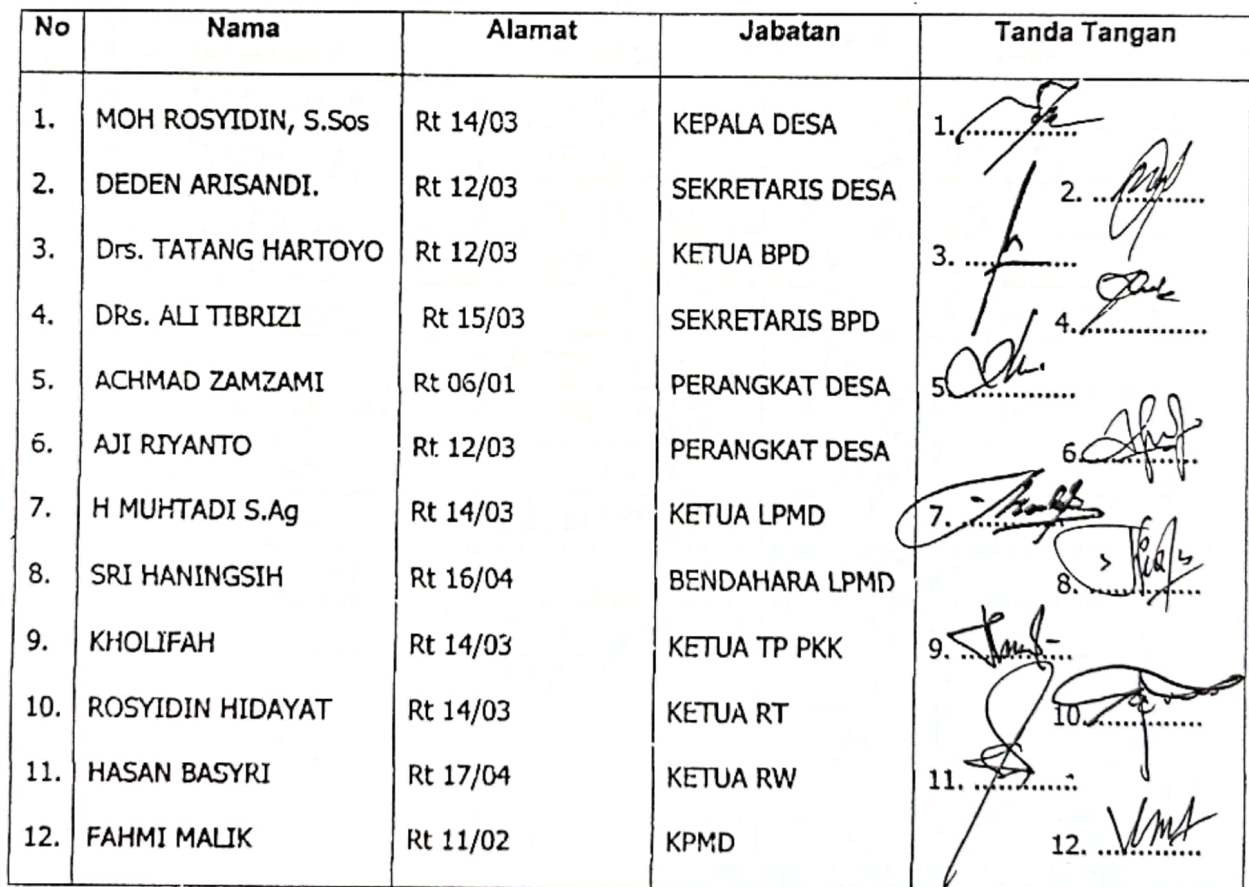 No Nama Alamat Jabatan Tanda Tangan
1. MOH ROSYIDIN, S.Sos Rt 14/03 KEPALA DESA 1. ..............
2. DEDEN ARISANDI. Rt 12/03 SEKRETARIS DESA 2. ..............
3. Drs. TATANG HARTOYO Rt 12/03 KETUA BPD 3. ..............
4. DRs. ALI TIBRIZI Rt 15/03 SEKRETARIS BPD 4. ..............
5. ACHMAD ZAMZAMI Rt 06/01 PERANGKAT DESA 5. ..............
6. AJI RIYANTO Rt 12/03 PERANGKAT DESA 6. ..............
7. H MUHTADI S.Ag Rt 14/03 KETUA LPMD 7. ..............
8. SRI HANINGSIH Rt 16/04 BENDAHARA LPMD 8. ..............
9. KHOLIFAH Rt 14/03 KETUA TP PKK 9. ..............
10. ROSYIDIN HIDAYAT Rt 14/03 KETUA RT 10. ..............
11. HASAN BASYRI Rt 17/04 KETUA RW 11. ..............
12. FAHMI MALIK Rt 11/02 KPMD 12. ..............